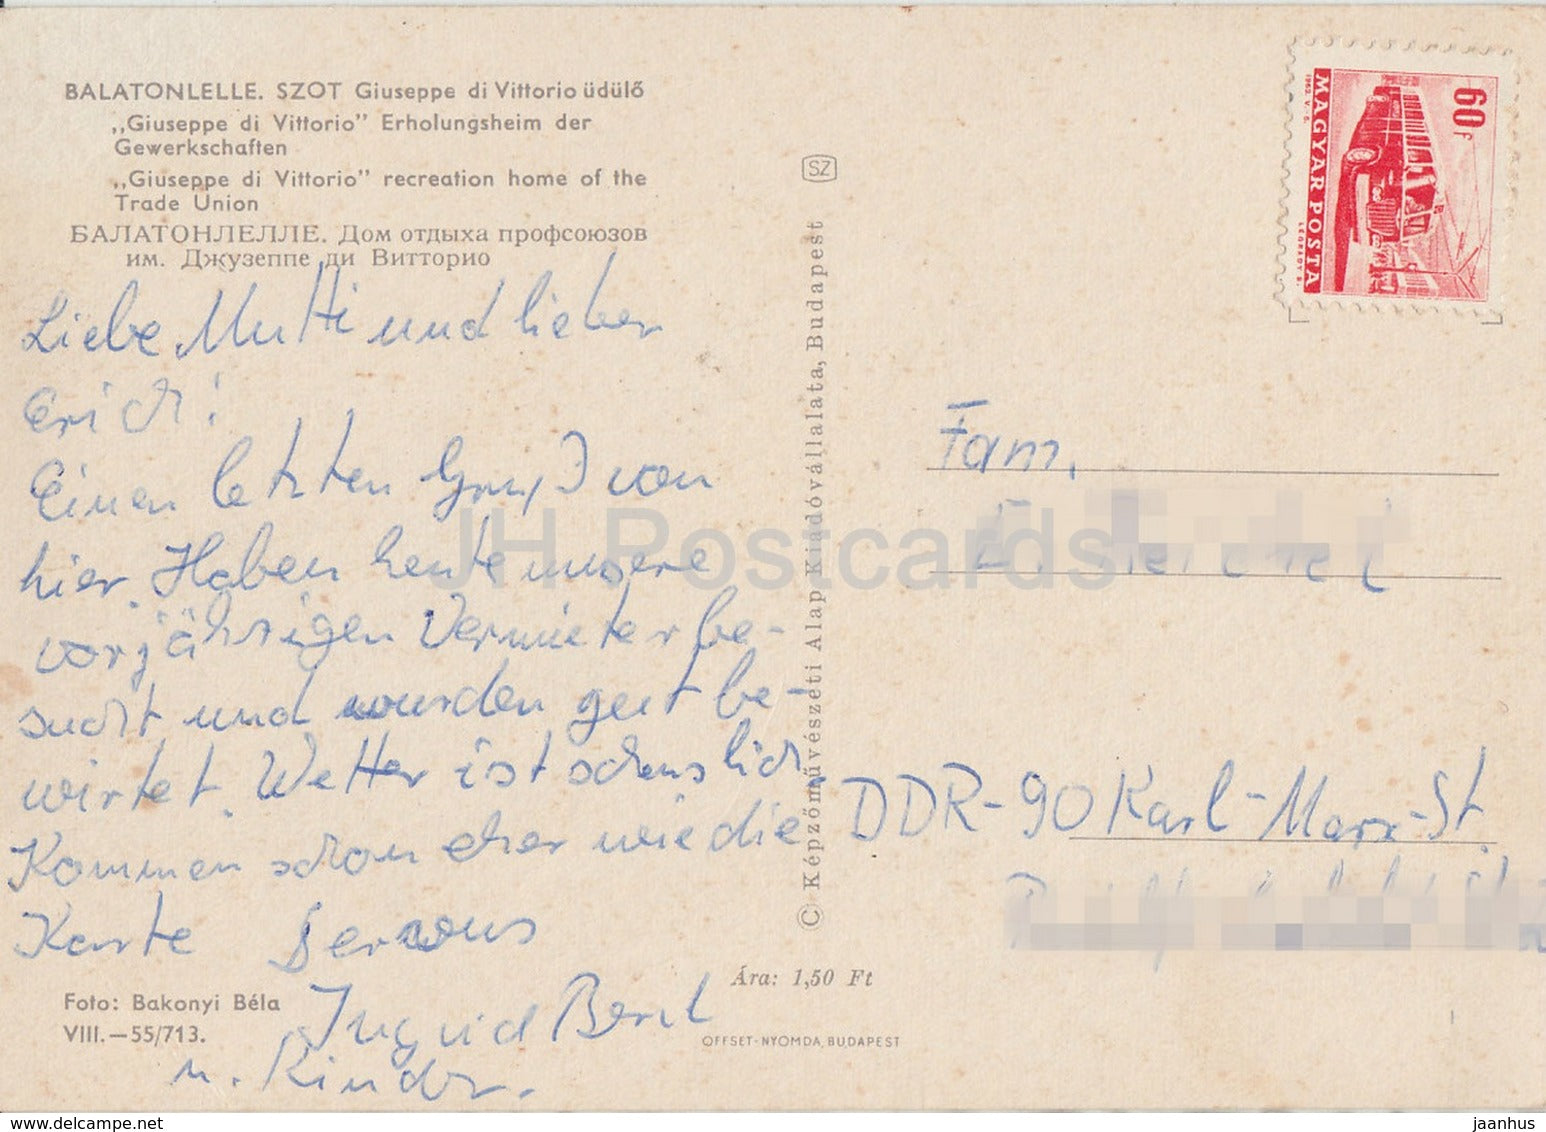 BALATONLELLE. SZOT Giuseppe di Vittorio üdülő
„Giuseppe di Vittorio" Erholungsheim der
Gewerkschaften
„Giuseppe di Vittorio" recreation home of the
Trade Union
БАЛАТОНЛЕЛЛЕ. Дом отдыха профсоюзов
им. Джузеппе ди Витторио
Liebe Mutti und lieber
Erich!
Einen letzten Gruß von
hier. Haben heute unsere
vorjährigen Vermieter be-
sucht und wurden gut be-
wirtet. Wetter ist scheuslich.
Kommen schon eher wie die
Karte Servus
Ingrid Bernd
u. Kinder.
Foto: Bakonyi Béla
VIII.—55/713.
SZ
© Képzőművészeti Alap Kiadóvállalata, Budapest
Ára: 1,50 Ft
OFFSET-NYOMDA, BUDAPEST
60 f
MAGYAR POSTA
1962. V. G.
LÉGRÁDY S.
Fam.
DDR-90 Karl-Marx-St.
JH Postcards
www.delcampe.net
jaanhus